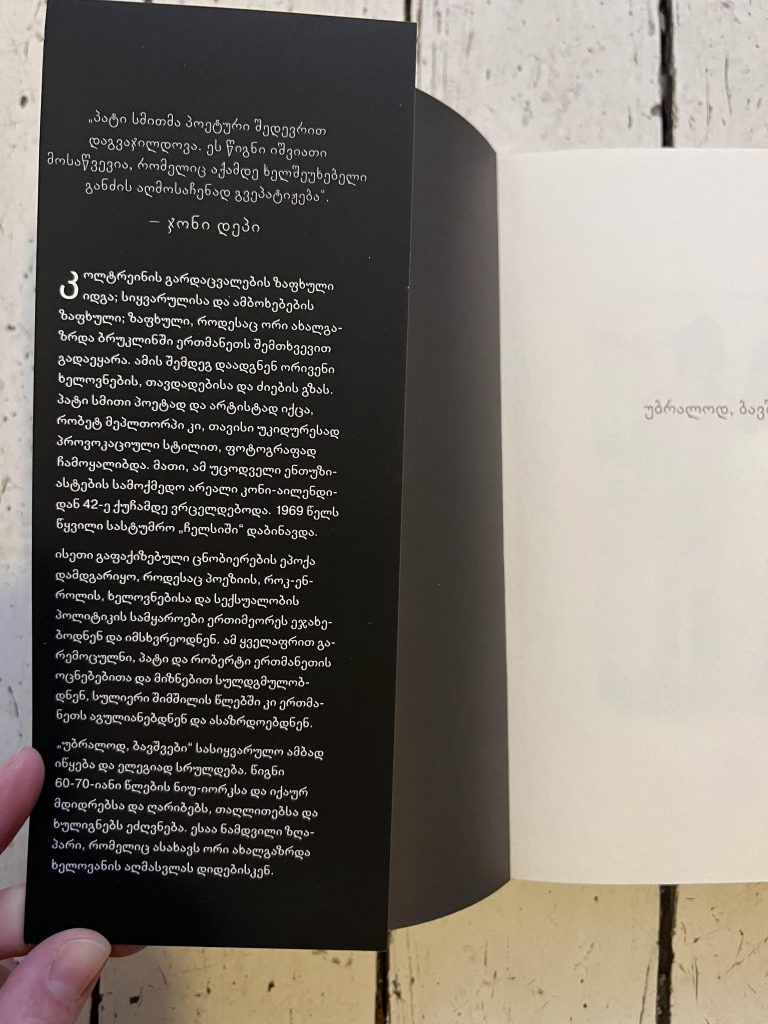 „პატი სმითმა პოეტური შედევრით
დაგვაჯილდოვა. ეს წიგნი იშვიათი
მოსაწვევია, რომელიც აქამდე ხელშეუხებელი
განძის აღმოსაჩენად გვეპატიჟება“.
– ჯონი დეპი
კოლტრეინის გარდაცვალების ზაფხული
იდგა; სიყვარულისა და ამბოხებების
ზაფხული; ზაფხული, როდესაც ორი ახალგა-
ზრდა ბრუკლინში ერთმანეთს შემთხვევით
გადაეყარა. ამის შემდეგ დაადგნენ ორივენი
ხელოვნების, თავდადებისა და ძიების გზას.
პატი სმითი პოეტად და არტისტად იქცა,
რობეტ მეპლთორპი კი, თავისი უკიდურესად
პროვოკაციული სტილით, ფოტოგრაფად
ჩამოყალიბდა. მათი, ამ უცოდველი ენთუზი-
ასტების სამოქმედო არეალი კონი-აილენდი-
დან 42-ე ქუჩამდე ვრცელდებოდა. 1969 წელს
წყვილი სასტუმრო „ჩელსიში“ დაბინავდა.
ისეთი გაფაქიზებული ცნობიერების ეპოქა
დამდგარიყო, როდესაც პოეზიის, როკ-ენ-
როლის, ხელოვნებისა და სექსუალობის
პოლიტიკის სამყაროები ერთიმეორეს ეჯახე-
ბოდნენ და იმსხვრეოდნენ. ამ ყველაფრით გა-
რემოცულნი, პატი და რობერტი ერთმანეთის
ოცნებებითა და მიზნებით სულდგმულობ-
დნენ, სულიერი შიმშილის წლებში კი ერთმა-
ნეთს აგულიანებდნენ და ასაზრდოებდნენ.
„უბრალოდ, ბავშვები“ სასიყვარულო ამბად
იწყება და ელეგიად სრულდება. წიგნი
60-70-იანი წლების ნიუ-იორკსა და იქაურ
მდიდრებსა და ღარიბებს, თაღლითებსა და
ხულიგნებს ეძღვნება. ესაა ნამდვილი ზღა-
პარი, რომელიც ასახავს ორი ახალგაზრდა
ხელოვანის აღმასვლას დიდებისკენ.
უბრალოდ, ბავშ